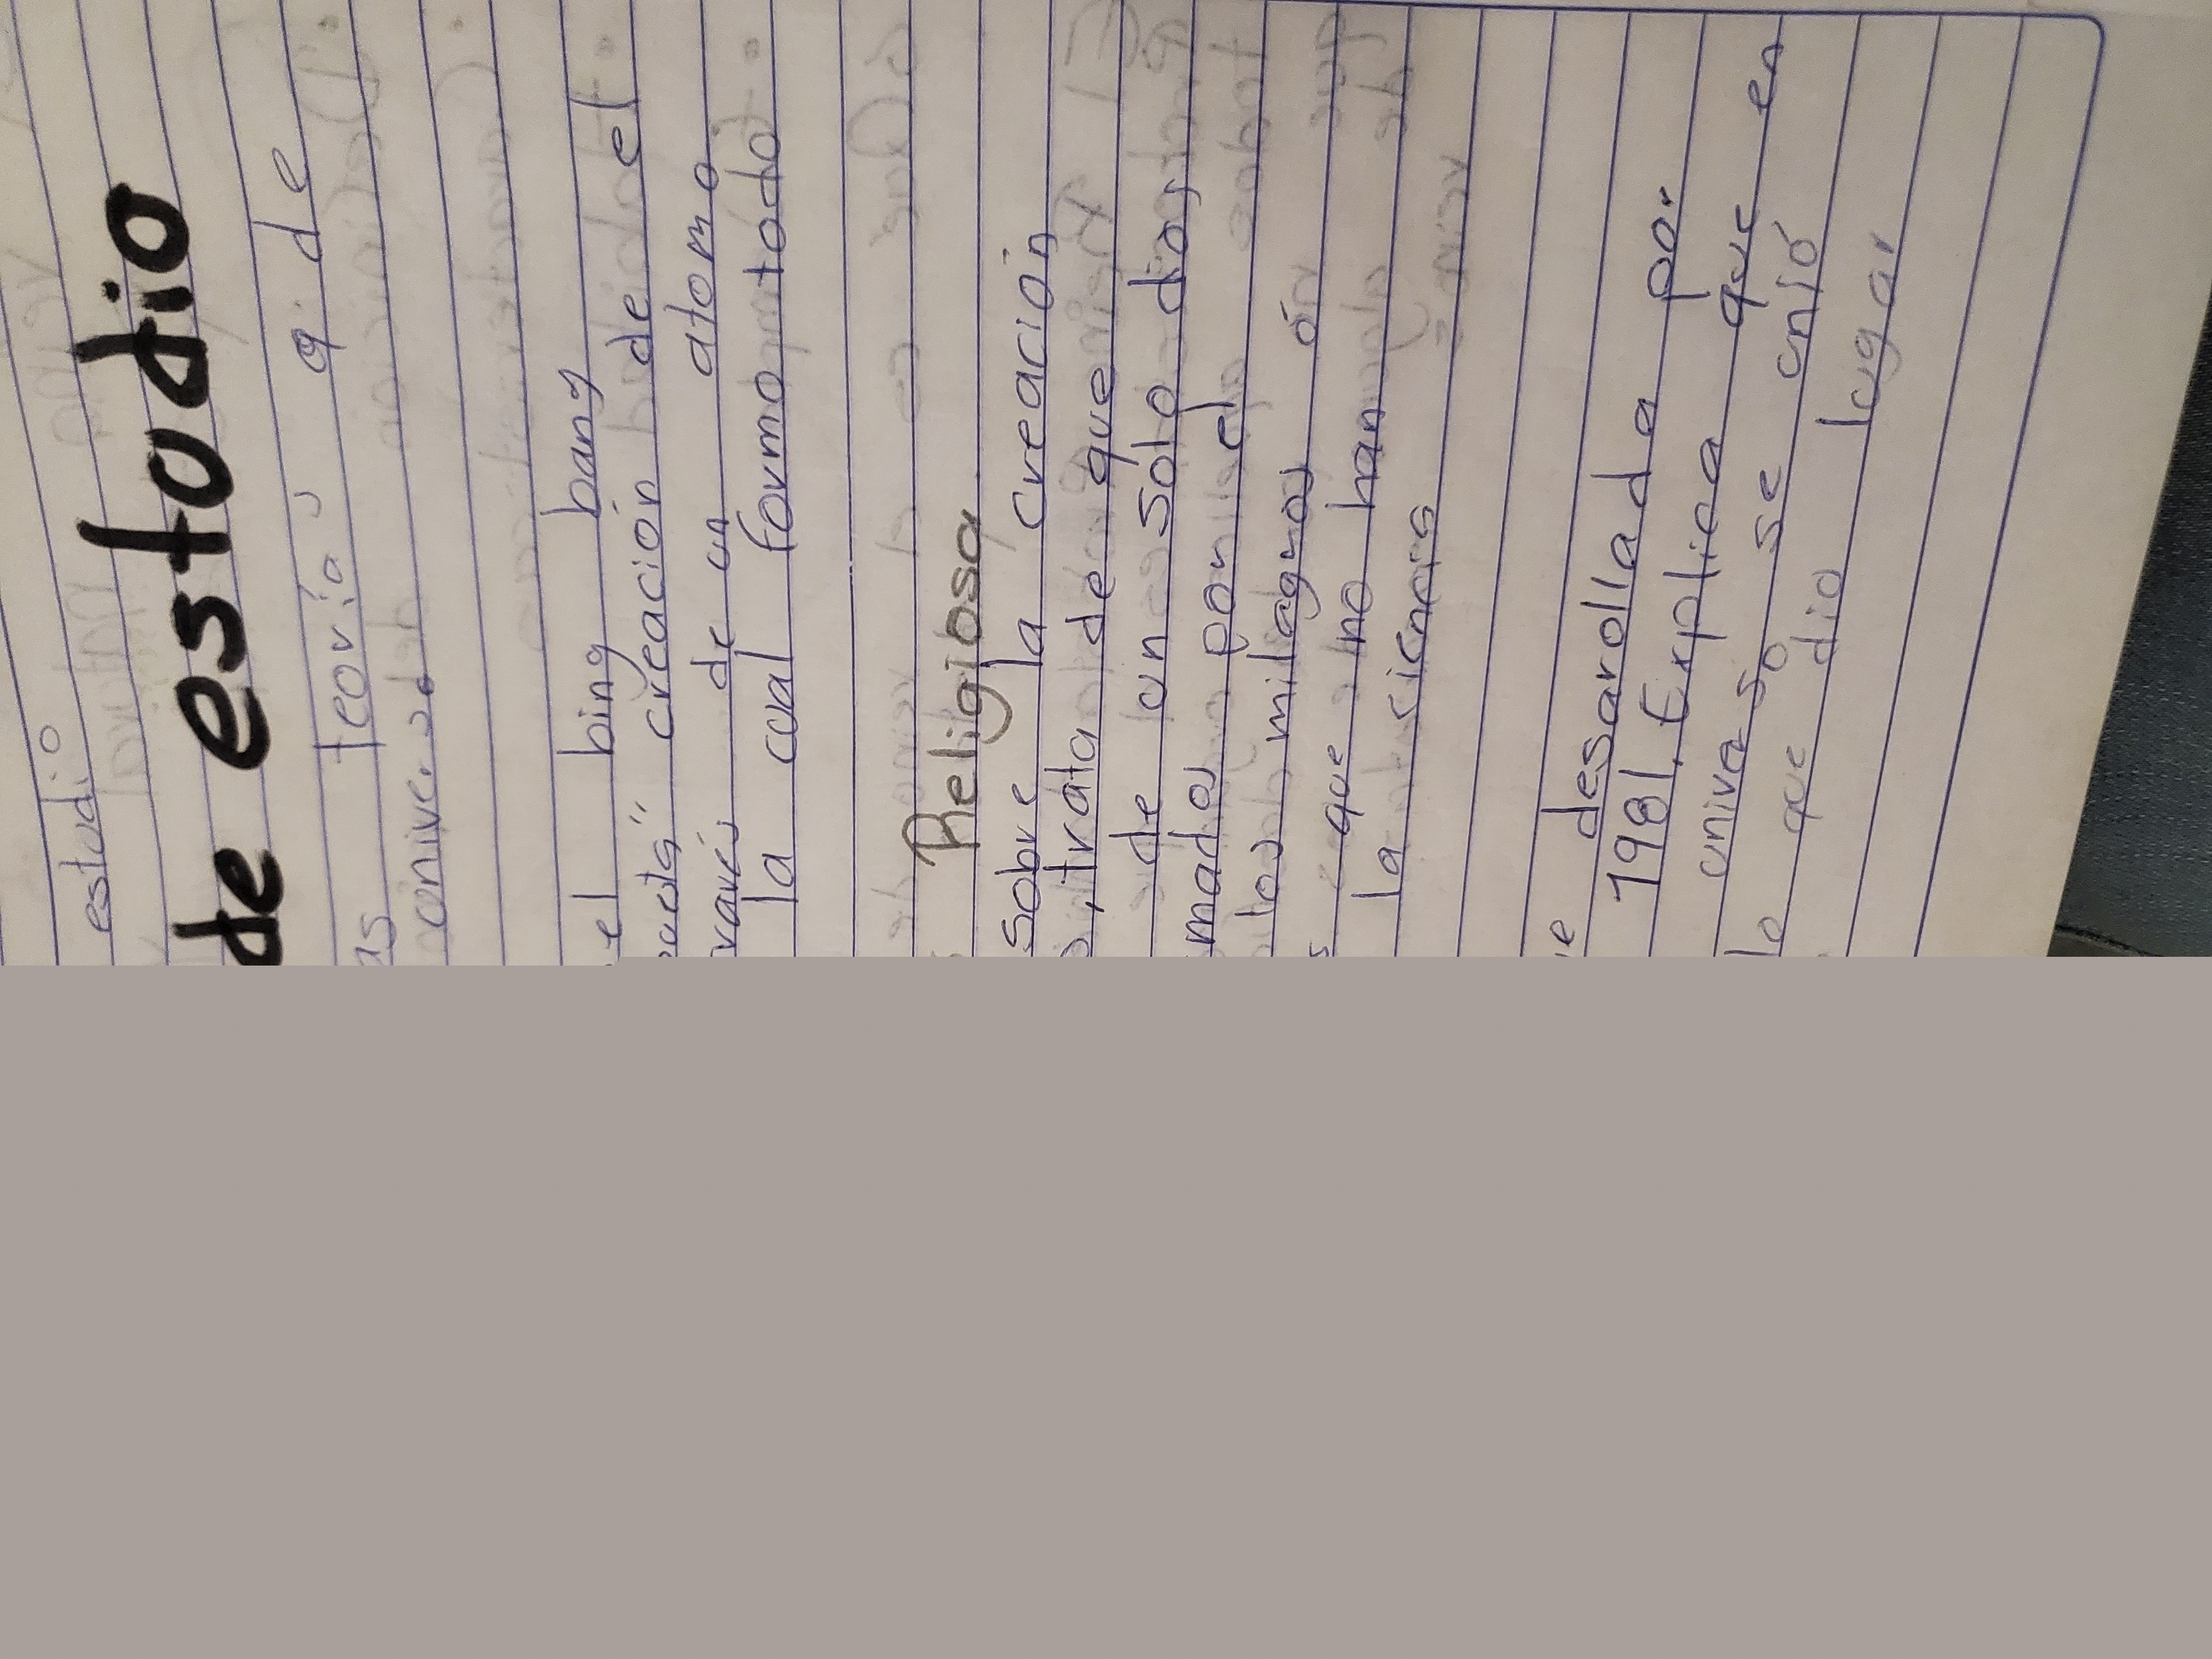 estudio
de estodio
teorías q. de
el bing bang
creación de el
de un atomo
la cual formo todo
Religiosa
sobre la creación
, trata de que
de un solo dios
por el
los milagros ón
que no han
la sicncis
desarollada por
1981. Explica que en
se unió
lo que dio lugar